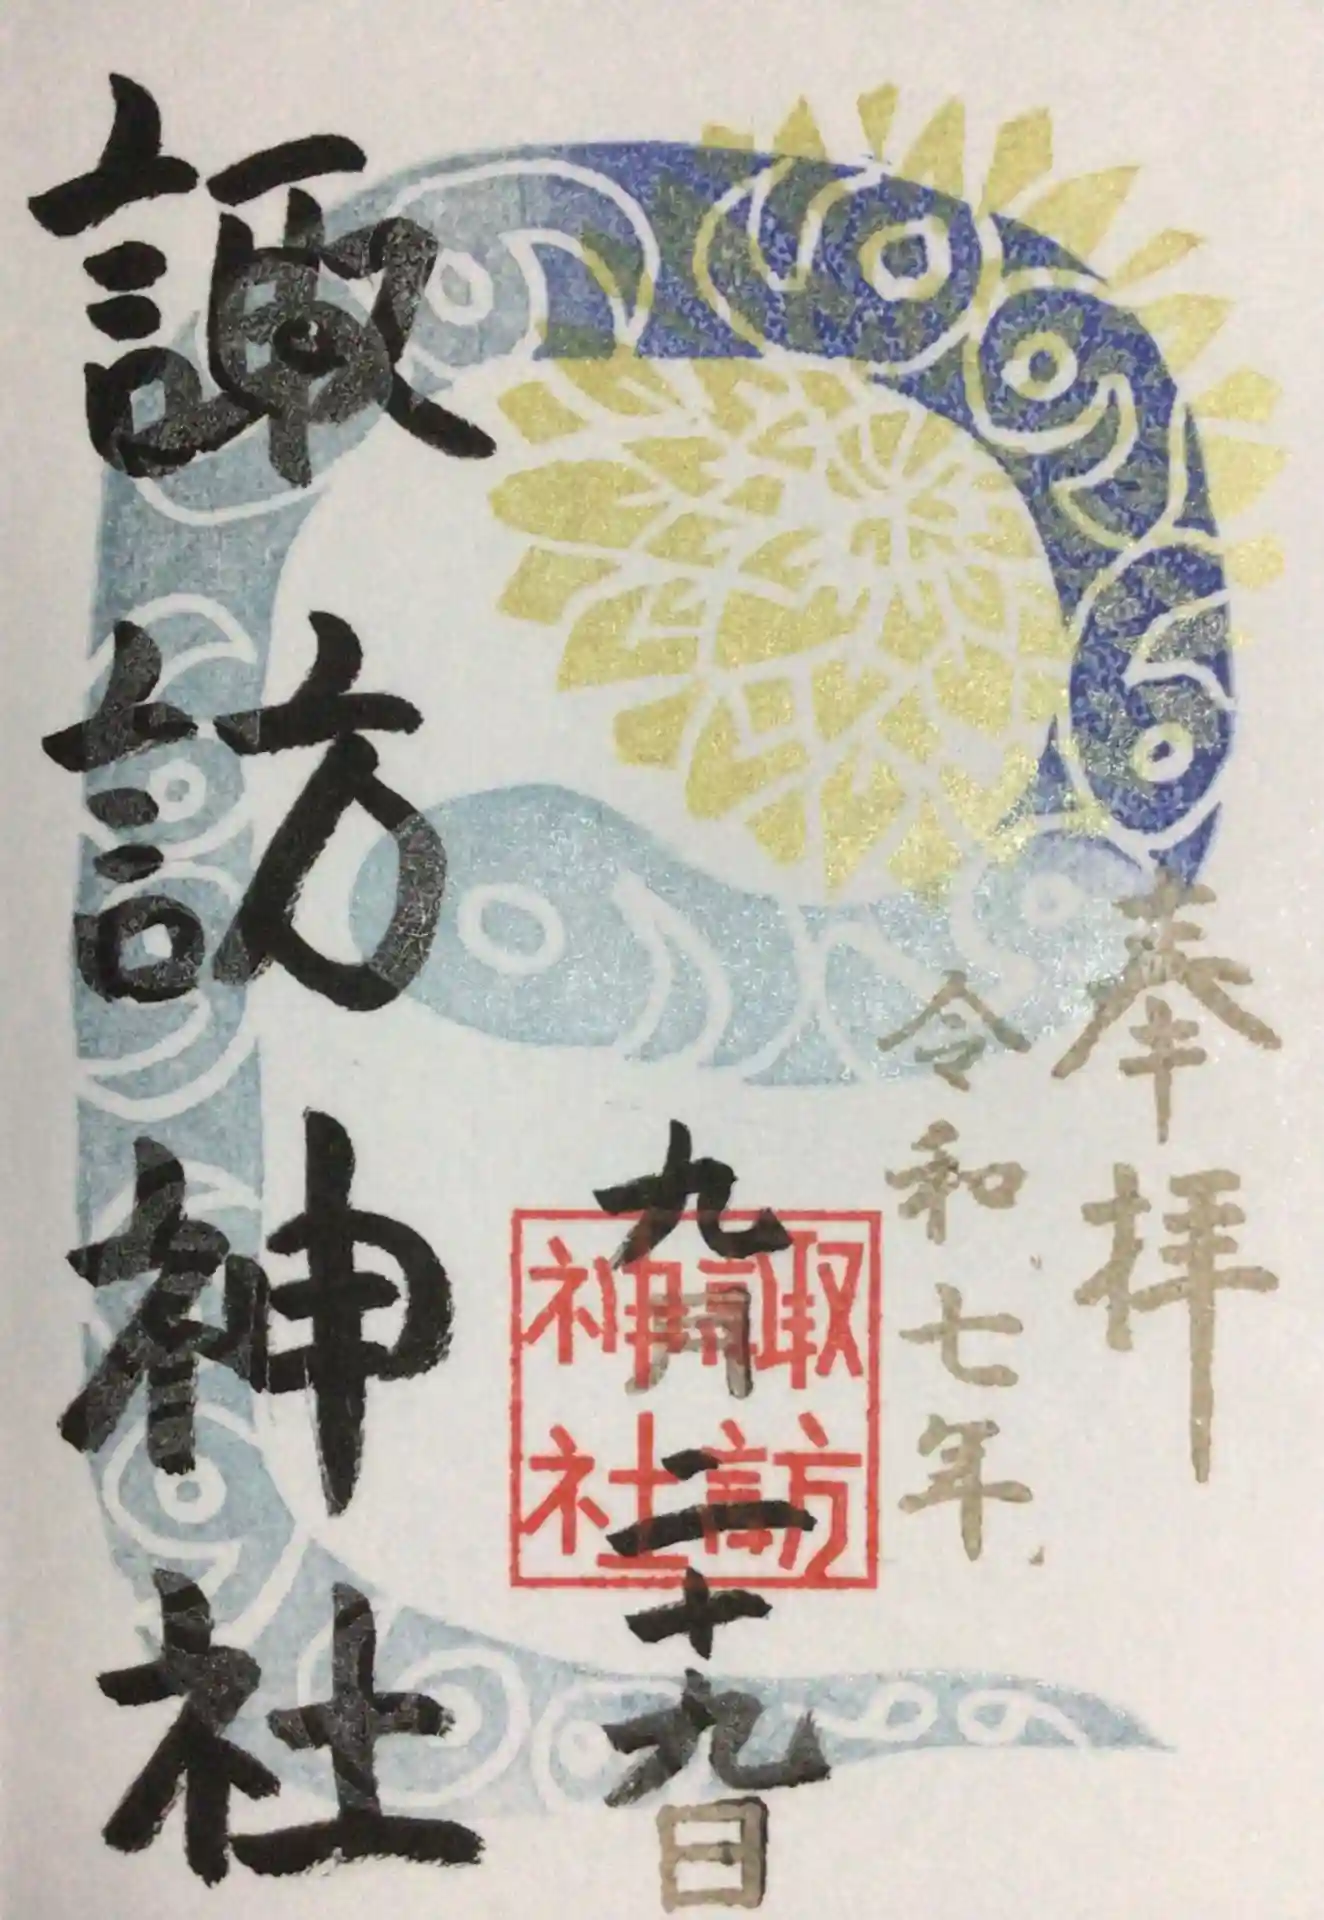 奉拝
令和七年
九月二十九日
諏訪
神社
諏訪神社